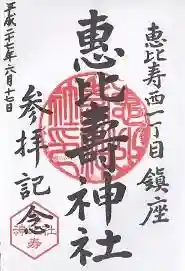 恵比寿西一丁目 鎮座
恵比壽神社
参拝記念
平成二十七年六月十七日